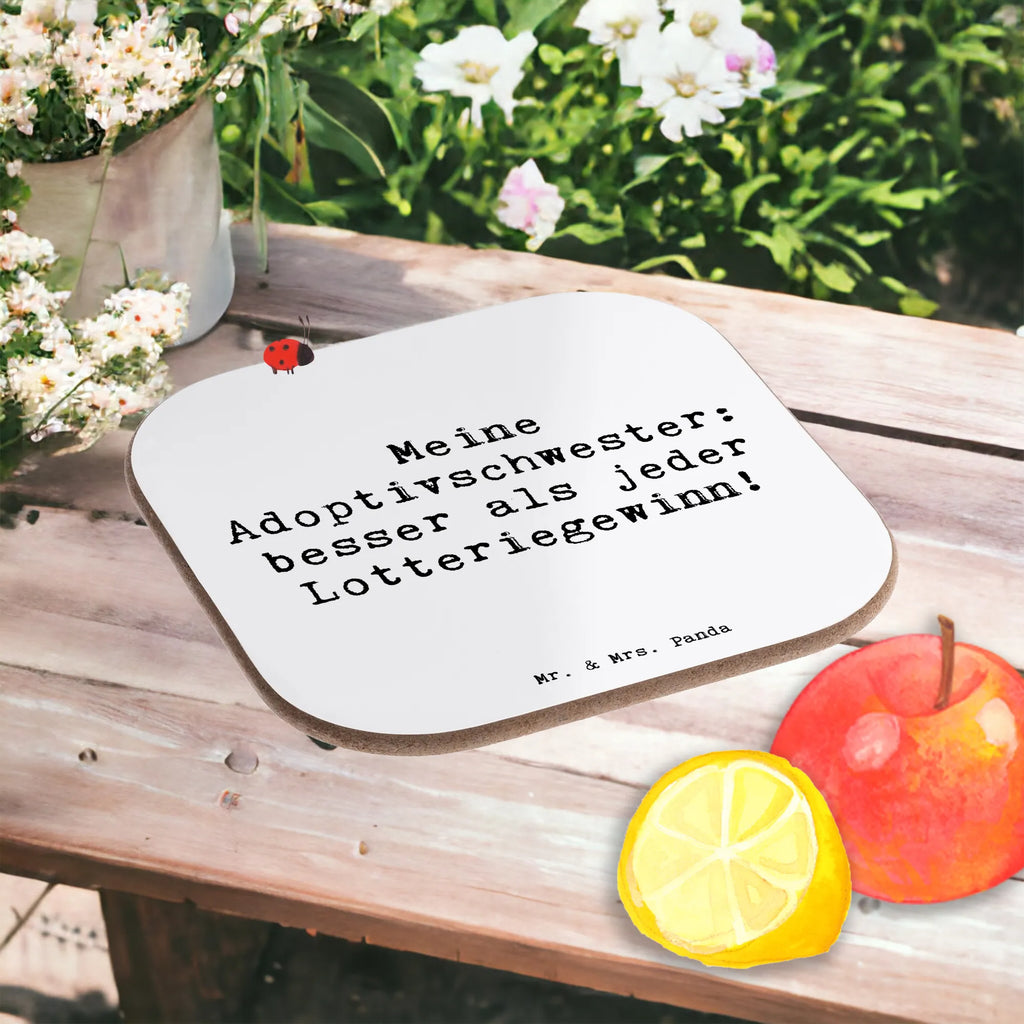 Meine
Adoptivschwester:
besser als jeder
Lotteriegewinn!
Mr. & Mrs. Panda